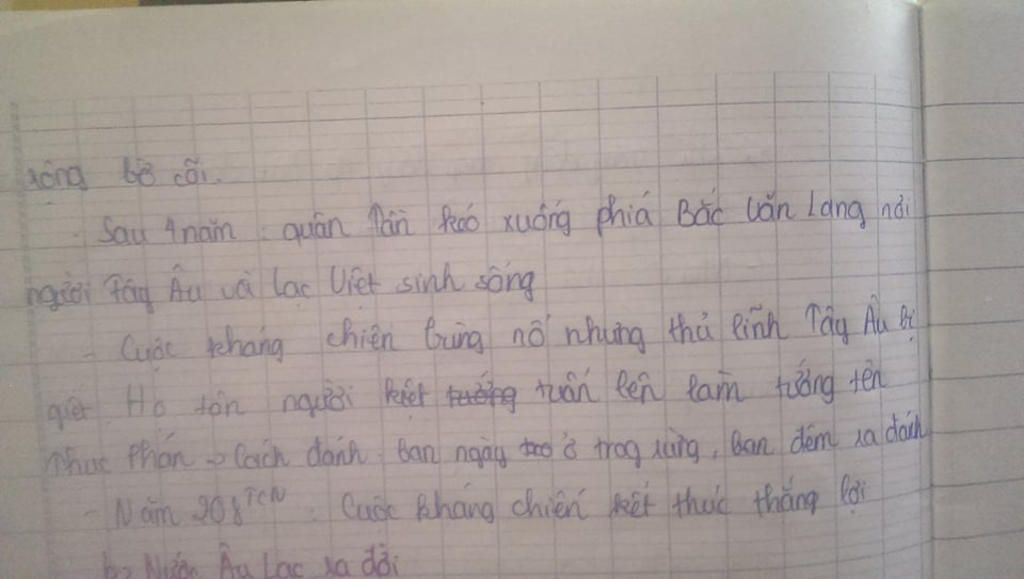 rộng bờ cõi.
- Sau 4 năm. quân Tần kéo xuống phía Bắc Văn Lang nơi
người Tây Âu và Lạc Việt sinh sống
- Cuộc kháng chiến bùng nổ nhưng thủ lĩnh Tây Âu bị
giết Họ tôn người kiệt tuấn lên làm tướng tên
Thục Phán -> Cách đánh. Ban ngày ở trog rừng, Ban đêm ra đánh
- Năm 208 TCN. Cuộc kháng chiến kết thúc thắng lợi
b> Nước Âu Lạc ra đời